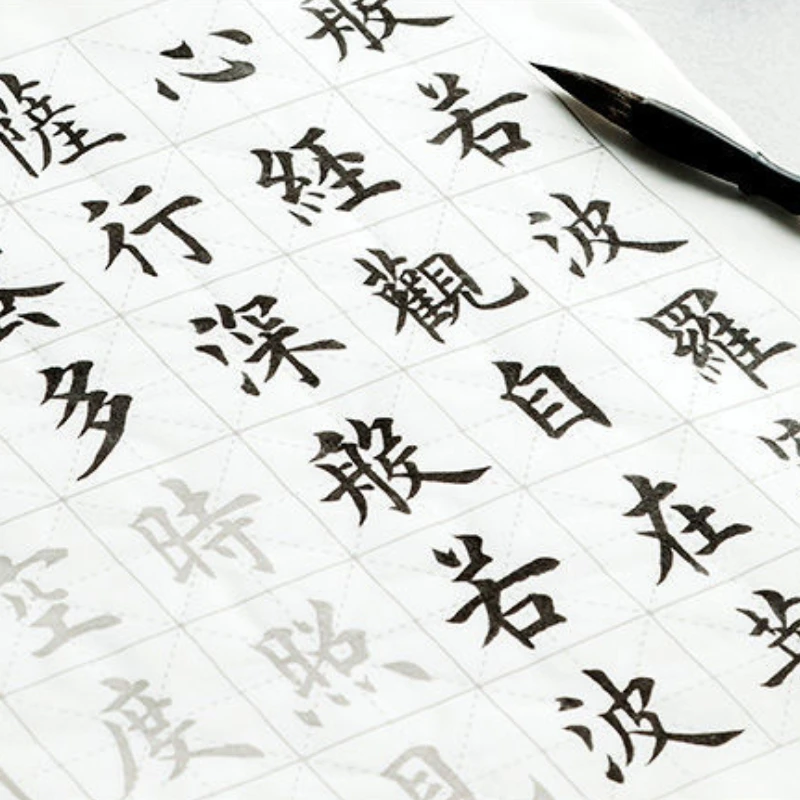 般若波羅
心経觀自在
薩行深般若波
多時照
空度